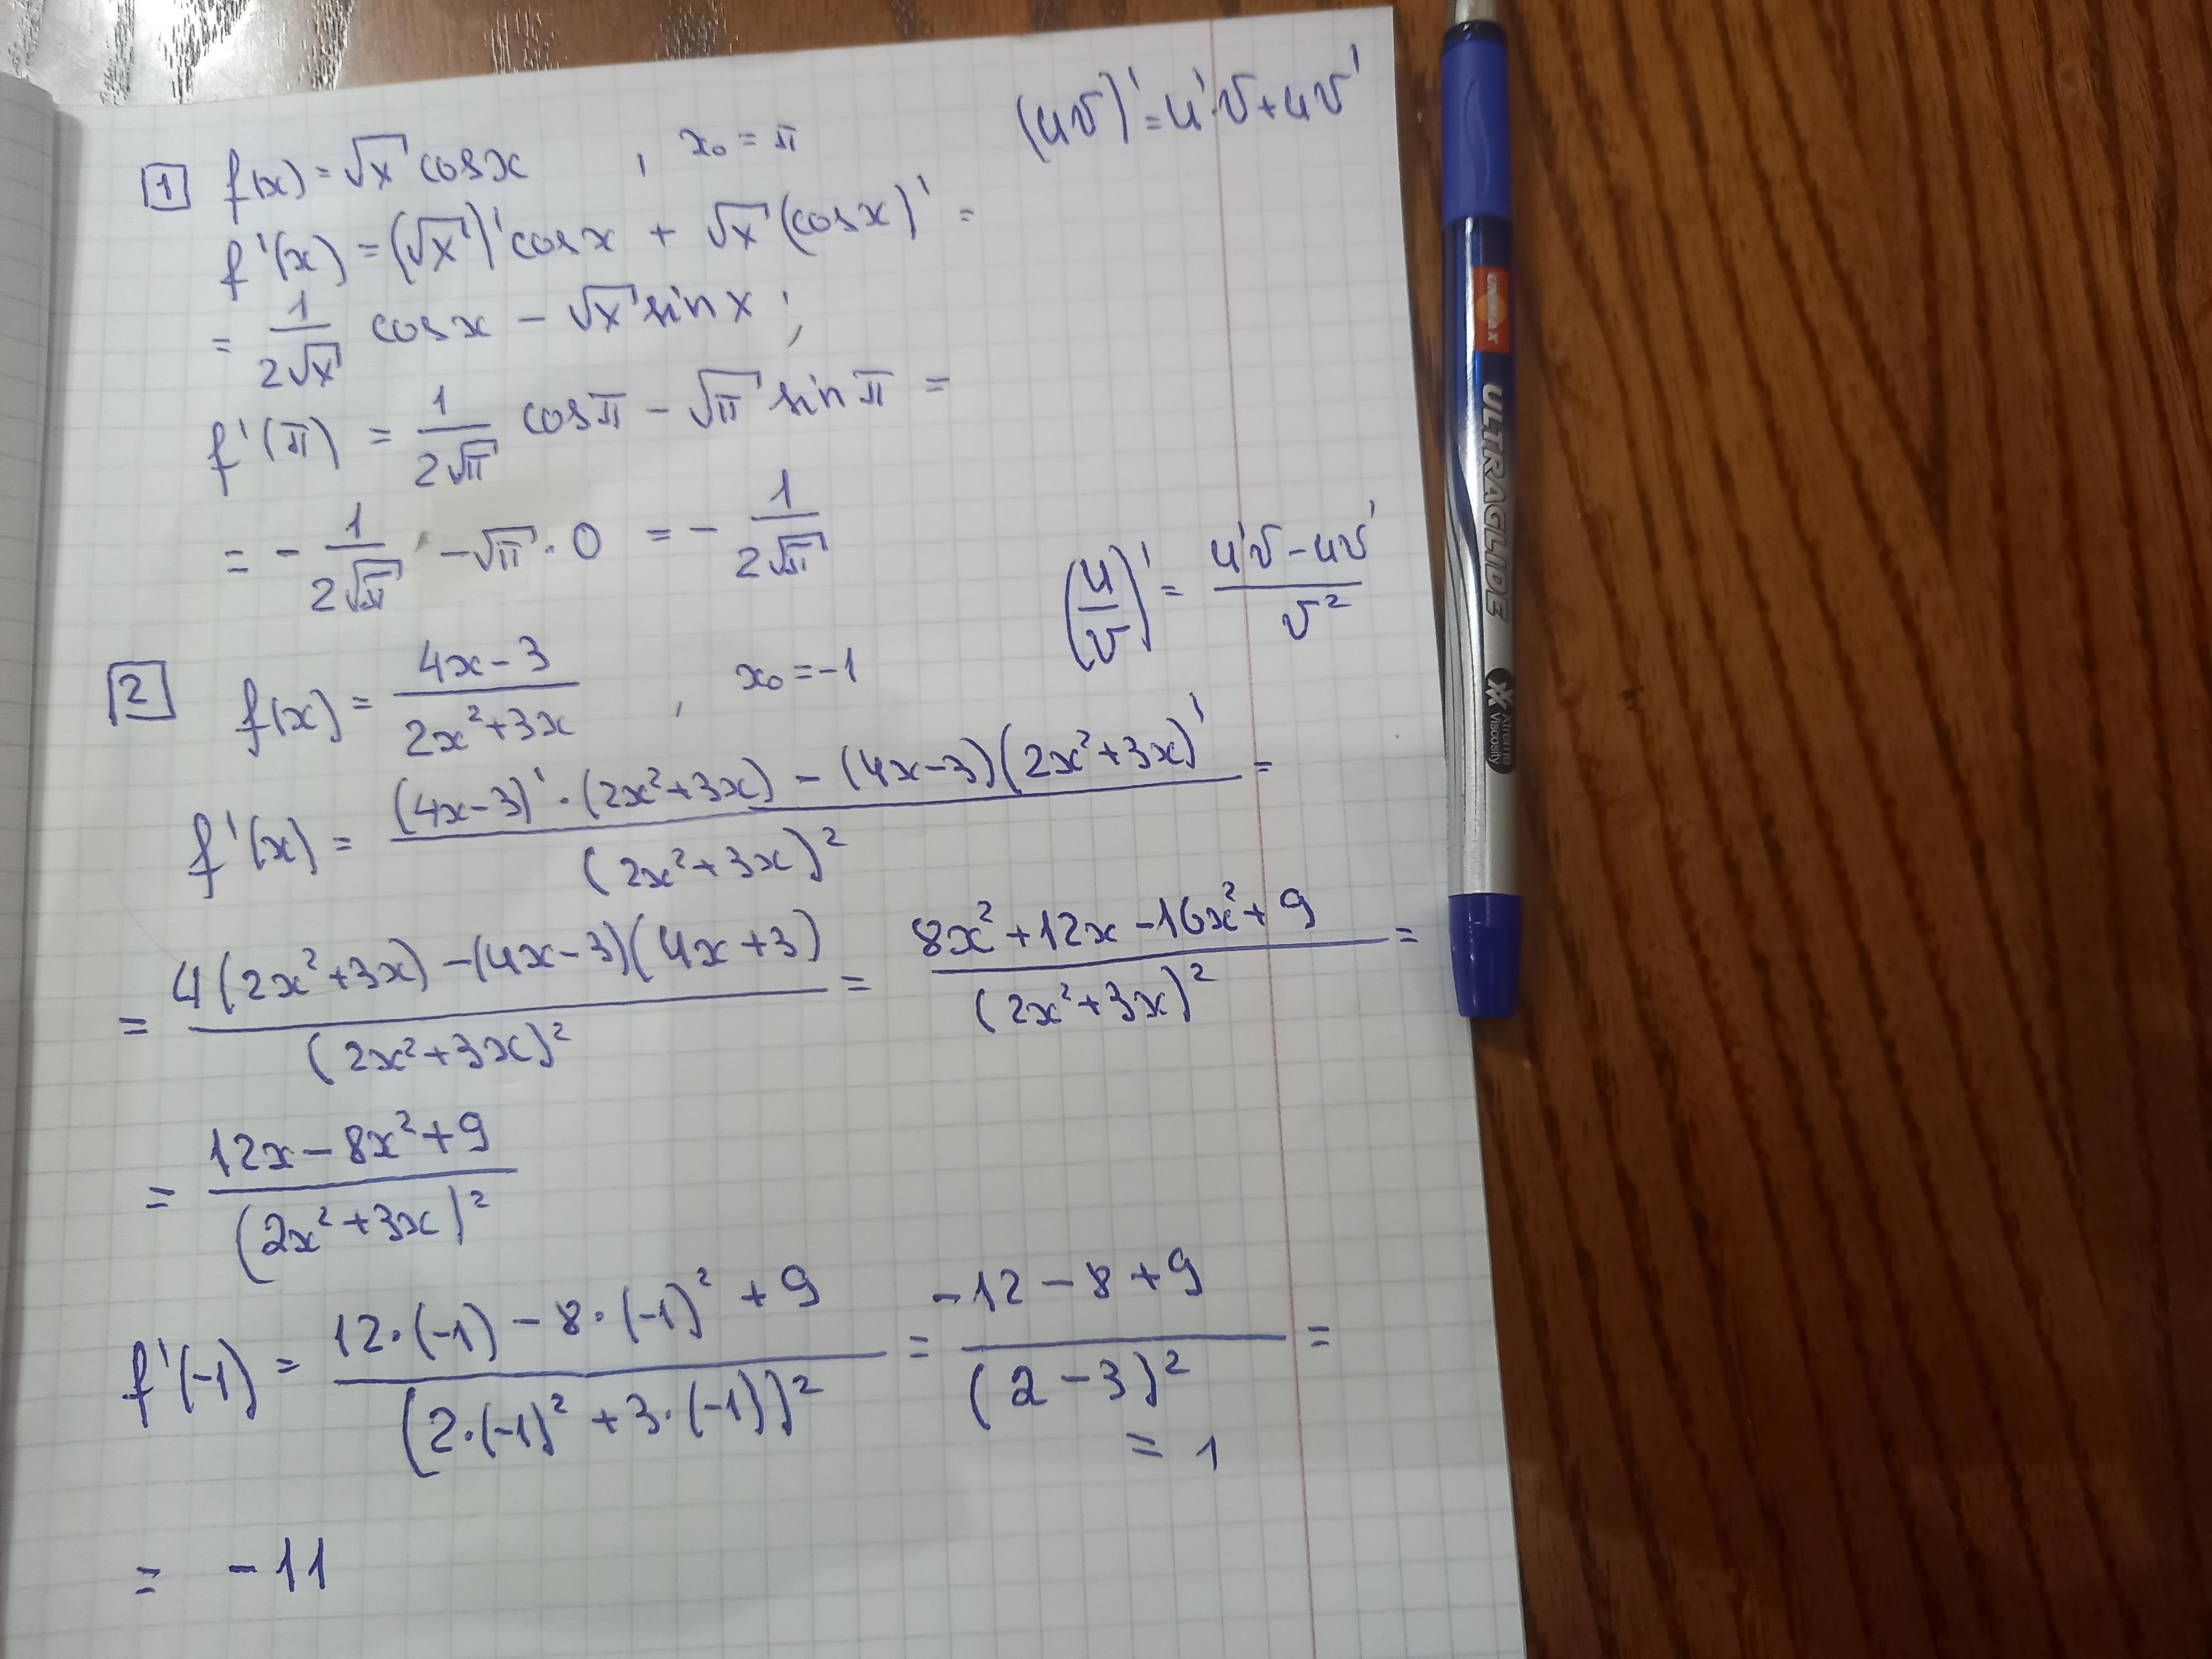 1 f(x) = √x cosx , x₀ = π
(uv)' = u'·v + uv'
f'(x) = (√x)' cosx + √x (cosx)' =
= 1/(2√x) cosx − √x sinx ;
f'(π) = 1/(2√π) cosπ − √π sinπ =
= − 1/(2√π) − √π · 0 = − 1/(2√π)
(u/v)' = (u'v − uv')/v²
2 f(x) = (4x−3)/(2x²+3x) , x₀ = −1
f'(x) = ((4x−3)'·(2x²+3x) − (4x−3)(2x²+3x)')/(2x²+3x)² =
= (4(2x²+3x) − (4x−3)(4x+3))/(2x²+3x)² = (8x²+12x−16x²+9)/(2x²+3x)² =
= (12x−8x²+9)/(2x²+3x)²
f'(−1) = (12·(−1) − 8·(−1)² + 9)/(2·(−1)² + 3·(−1))² = (−12 − 8 + 9)/(2−3)² =
= 1
= −11
UNIMAX
ULTRAGLIDE
Xtreme
Viscosity